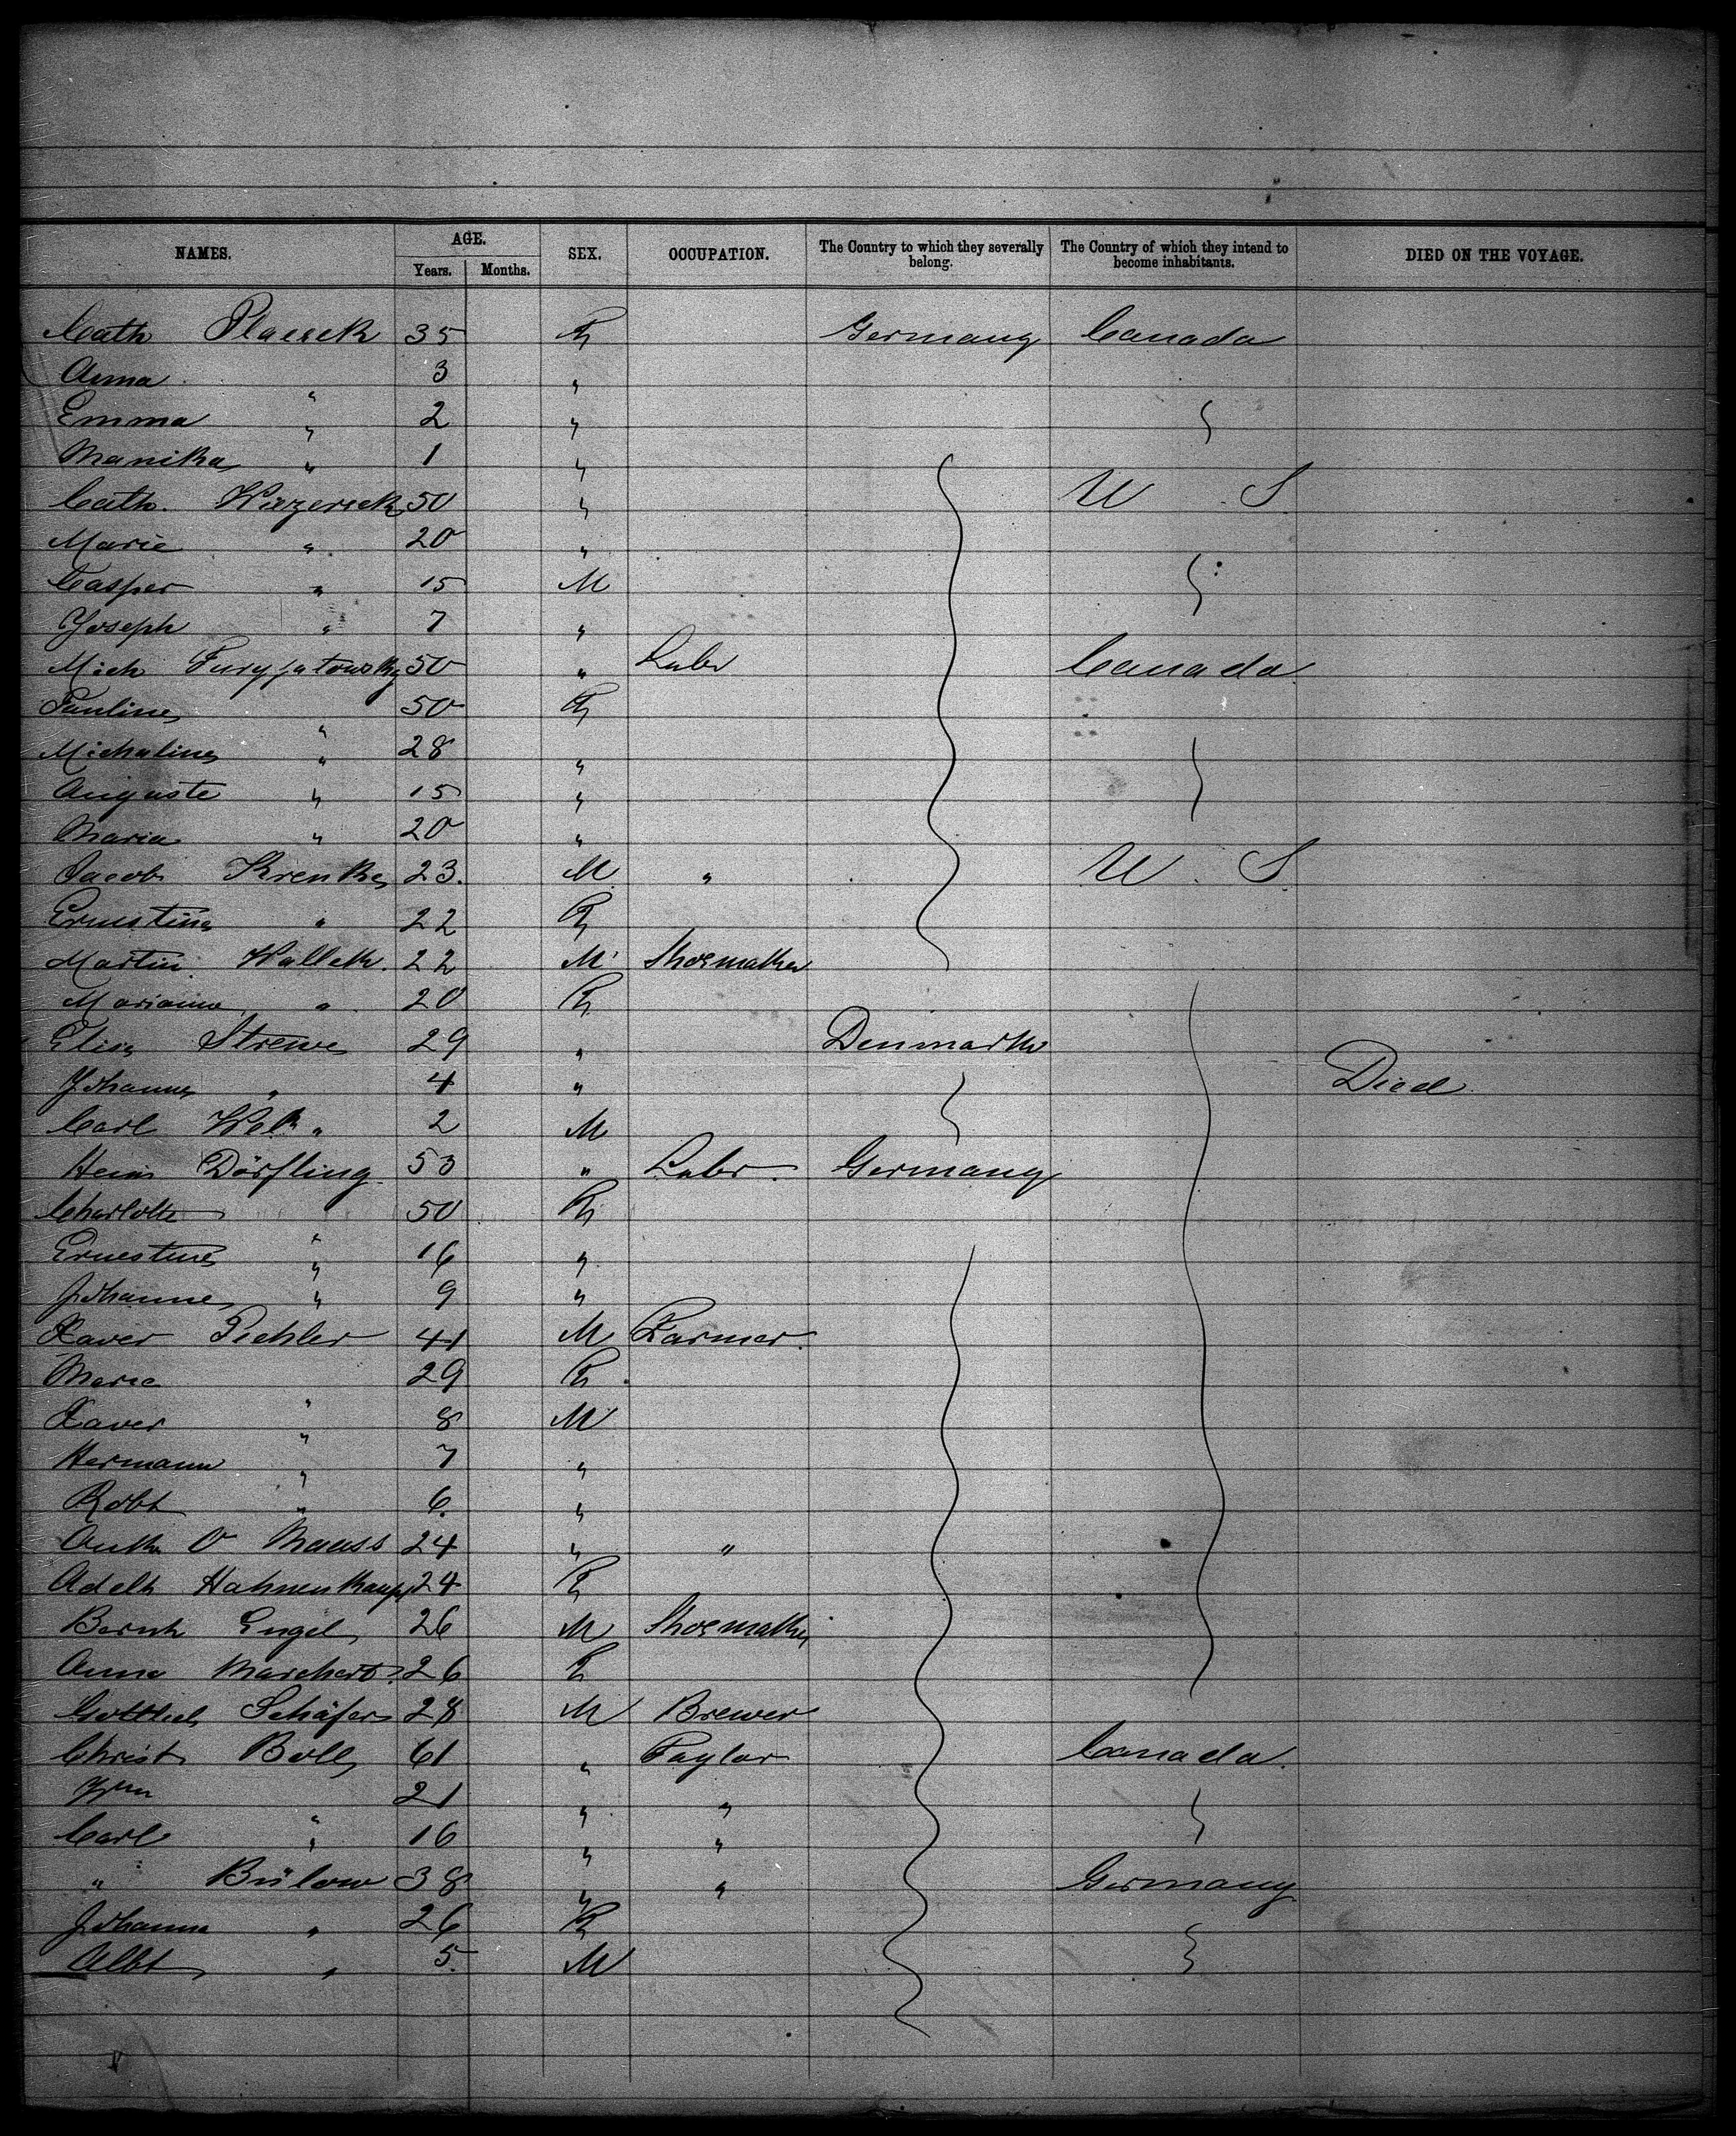 NAMES. AGE. SEX. OCCUPATION. The Country to which they severally belong. The Country of which they intend to become inhabitants. DIED ON THE VOYAGE.
Years. Months.
Cath 35 F Germany Canada
Anna " 3 "
Emma " 2 "
Manika " 1 "
Cath. 50 " U S
Marie " 20 "
Casper " 15 M
Joseph " 7 "
Mich 50 " Labr Canada
Pauline " 50 F
Michaline " 28 "
Auguste " 15 "
Maria " 20 "
Jacob Krenke 23 M " U S
Ernestine " 22 F
Martin Walleck 22 M Shoemaker
Marianne " 20 F
Elise Strewe 29 " Denmark
Johanne " 4 " Died
Carl " 2 M
Heinr Dörfling 53 " Labr Germany
Charlotte " 50 F
Ernestine " 16 "
Johanne " 9 "
Xaver Pichler 41 M Farmer
Marie " 29 F
Xaver " 8 M
Hermann " 7 "
Robt " 6 "
Maass 24 " "
Adelh 24 F
Bernh Engel 26 M Shoemaker
Anna 26 F
Gottlieb Schäfer 28 M Brewer
Christ Boll 61 " Taylor Canada
Wm " 21 " "
Carl " 16 " "
" Bülow 38 " " Germany
Johanna " 26 F
Albt " 5 M